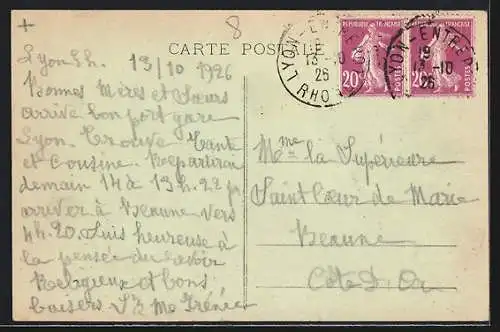 8
CARTE POSTALE
Lyon 5h. 13/10 1926
Bonnes Mères et Sœurs
arrivé bon port gare
Lyon. Trouvé Tante
et Cousine. Repartirai
demain 14 à 13h.22 pr
arriver à Beaune vers
4h.20. Suis heureuse à
la pensée du revoir
Religieux et bons
baisers Sr Me Irénée
Mme la Supérieure
Saint Cœur de Marie
Beaune
Côte D'Or
LYON-ENTREP
13-10
26
RHONE
REPUBLIQUE FRANCAISE
20c
POSTES
LYON-ENTREP
19
13-10
26
POSTES